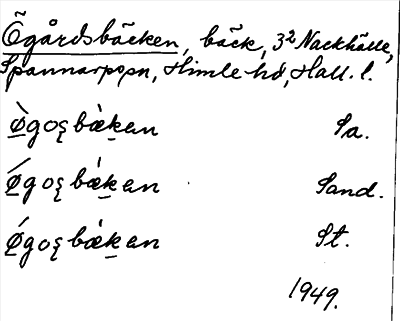 Ögårdsbäcken, bäck, 3² Nackhälle,
Spannarp sn, Himle hd, Hall. l.
ø̀goʂbὰk̠an Sa.
ǿgoʂbák̠an Sand.
ǿgoʂbǽk̠an St.
1949.